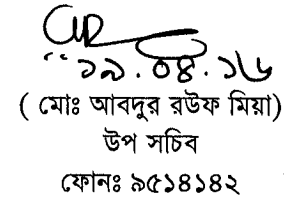 ১৯.০৪.১৬
( মোঃ আবদুর রউফ মিয়া)
উপ সচিব
ফোনঃ ৯৫১৪১৪২